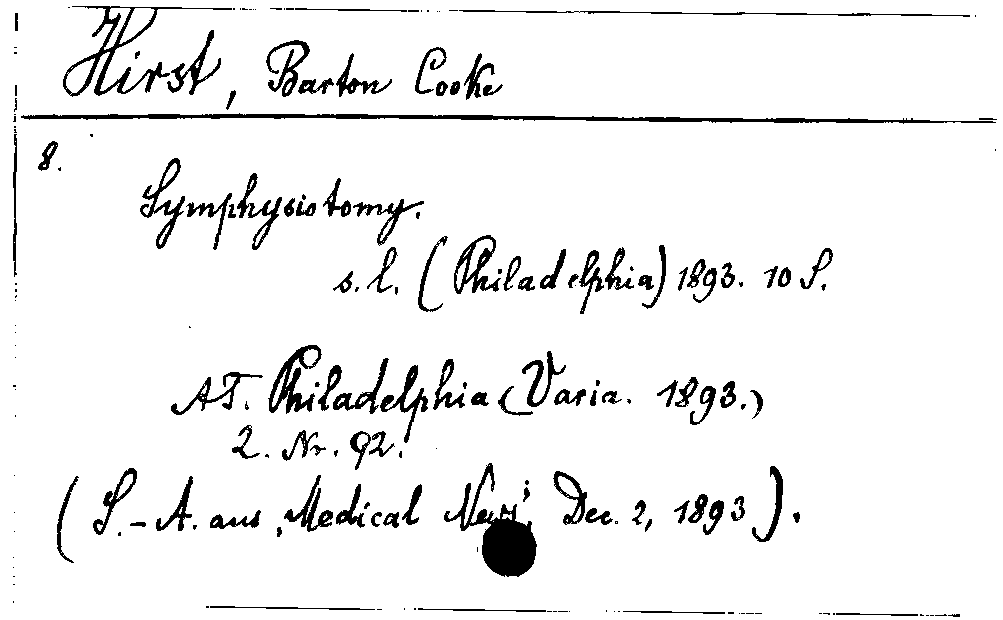 Hirst, Barton Cooke
8.
Symphysiotomy.
s. l. (Philadelphia) 1893. 10 S.
AT. Philadelphia (Varia. 1893.)
2. Nr. 92.
(S.-A. aus „Medical News“, Dec. 2, 1893).